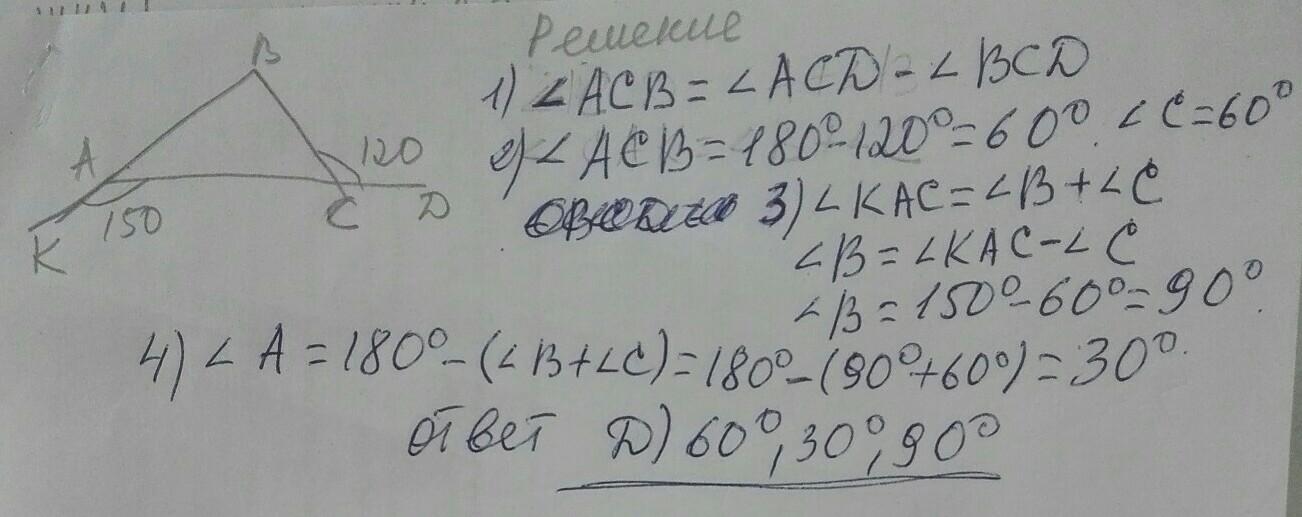 Решение
В
А
120
150
С
D
К
1) ∠ACB = ∠ACD - ∠BCD
2) ∠ACB = 180° - 120° = 60°. ∠C = 60°
3) ∠KAC = ∠B + ∠C
∠B = ∠KAC - ∠C
∠B = 150° - 60° = 90°.
4) ∠A = 180° - (∠B + ∠C) = 180° - (90° + 60°) = 30°.
ответ D) 60°, 30°, 90°